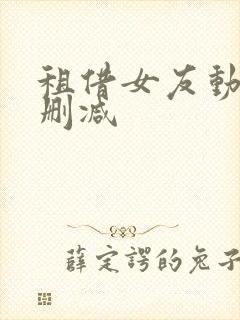 租借女友動
刪減
薛定諤的兔子